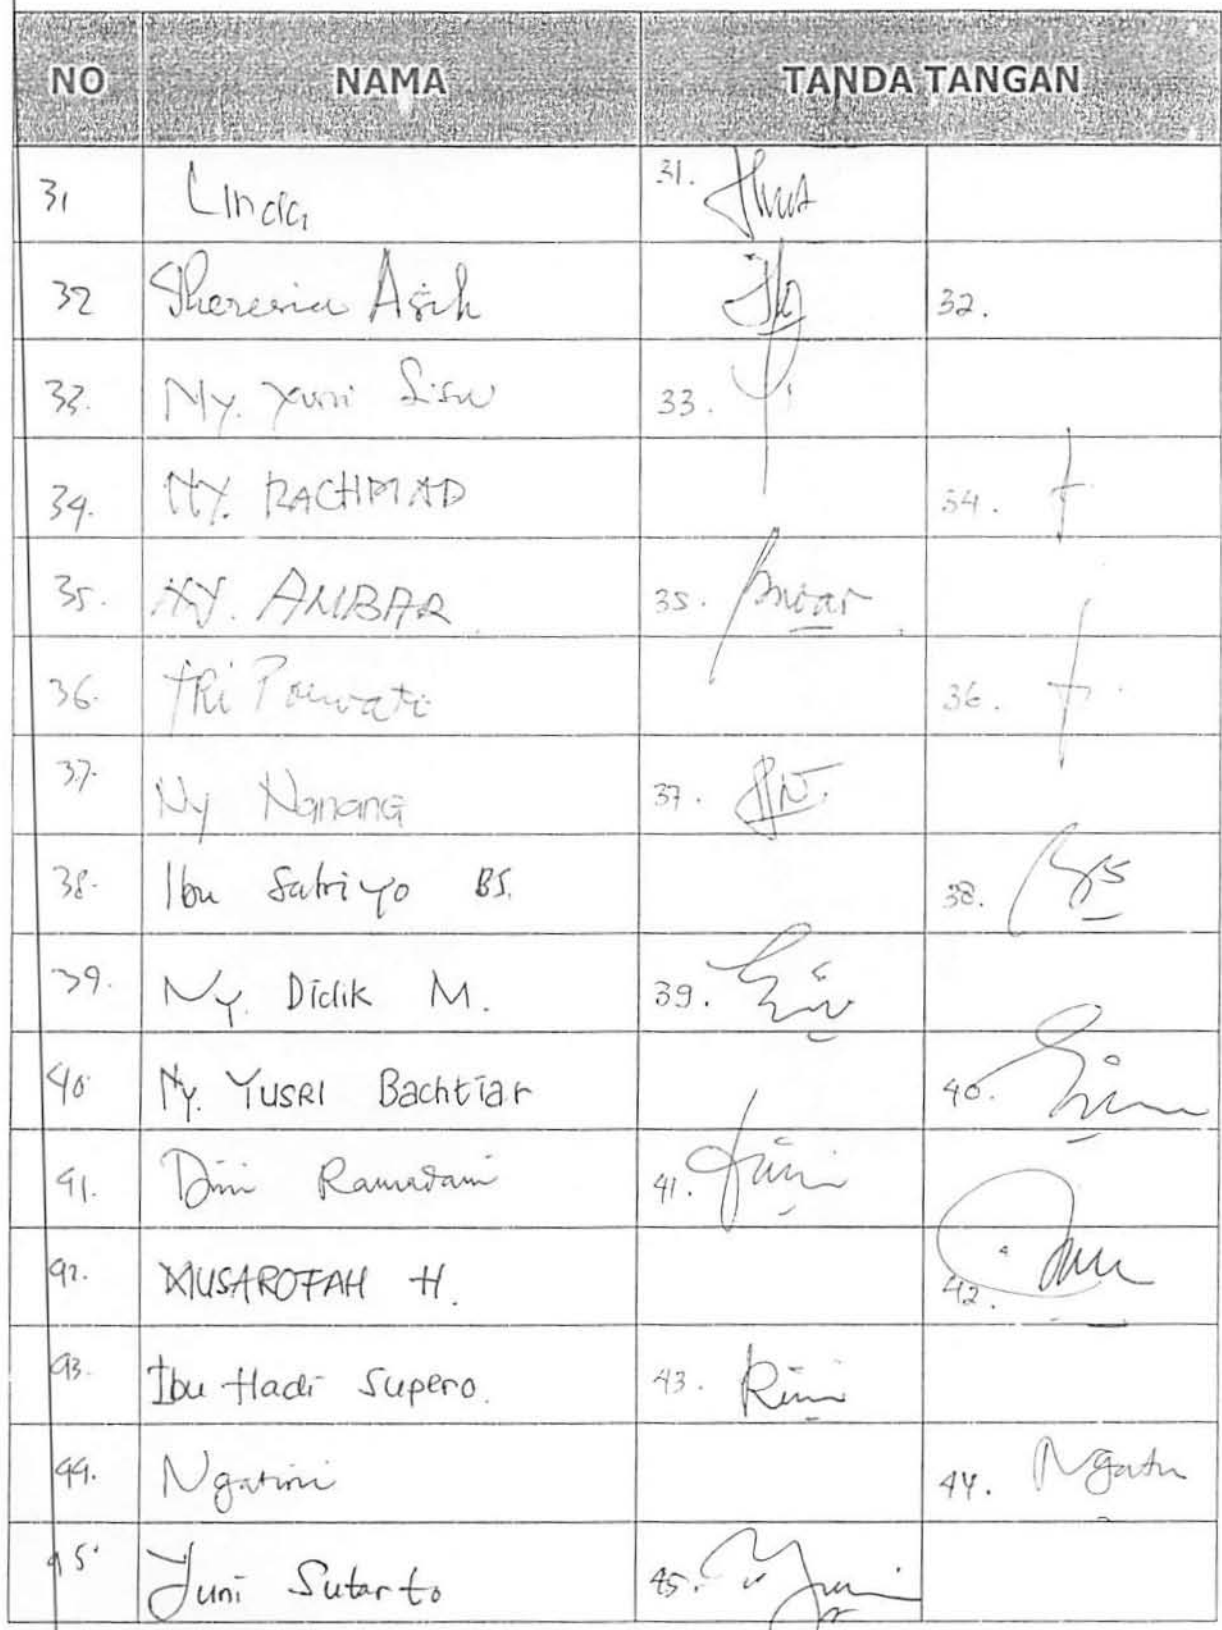 NO NAMA TANDA TANGAN
31 Linda 31.
32 Theresia Asih 32.
33. Ny. Yuni 33.
34. NY. RACHMAD 34.
35. NY. AMBAR 35. Ambar
36. TRi Purwati 36.
37. Ny Nanang 37.
38. Ibu Satriyo BS. 38.
39. Ny. Didik M. 39.
40 Ny. YUSRI Bachtiar 40.
41. Dini Ramadani 41.
42. MUSAROFAH H. 42.
43. Ibu Hadi Supeno. 43. Rini
44. Ngatini 44. Ngatn
45. Yuni Sutarto 45.